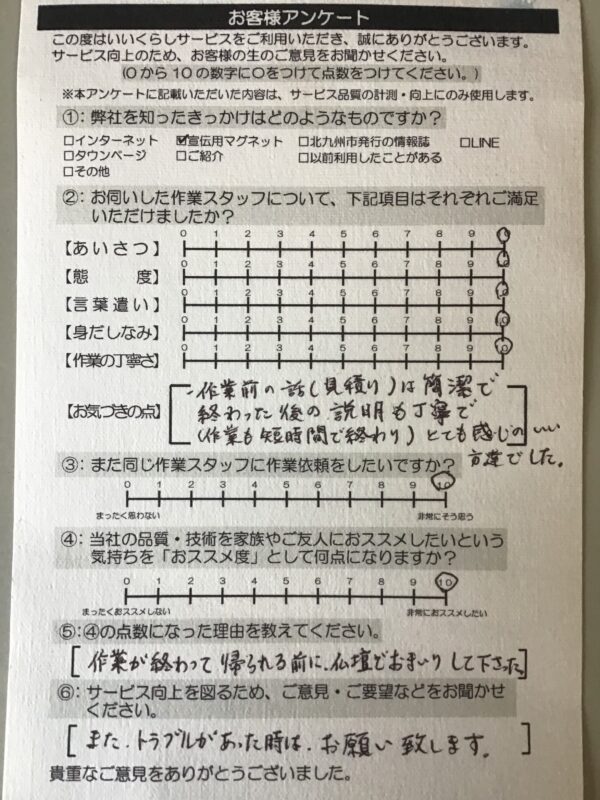 お客様アンケート
この度はいいくらしサービスをご利用いただき、誠にありがとうございます。
サービス向上のため、お客様の生のご意見をお聞かせください。
(0から10の数字に○をつけて点数をつけてください。)
※本アンケートに記載いただいた内容は、サービス品質の計測・向上にのみ使用します。
①：弊社を知ったきっかけはどのようなものですか？
□インターネット ☑宣伝用マグネット □北九州市発行の情報誌 □LINE
□タウンページ □ご紹介 □以前利用したことがある
□その他
②：お伺いした作業スタッフについて、下記項目はそれぞれご満足
いただけましたか？
0 1 2 3 4 5 6 7 8 9 10
【あいさつ】
0 1 2 3 4 5 6 7 8 9 10
【態 度】
0 1 2 3 4 5 6 7 8 9 10
【言葉遣い】
0 1 2 3 4 5 6 7 8 9 10
【身だしなみ】
0 1 2 3 4 5 6 7 8 9 10
【作業の丁寧さ】
【お気づきの点】
作業前の話(見積り)は簡潔で
終わった後の説明も丁寧で
(作業も短時間で終わり)とても感じのいい
方達でした。
③：また同じ作業スタッフに作業依頼をしたいですか？
0 1 2 3 4 5 6 7 8 9 10
まったく思わない 非常にそう思う
④：当社の品質・技術を家族やご友人におススメしたいという
気持ちを「おススメ度」として何点になりますか？
0 1 2 3 4 5 6 7 8 9 10
まったくおススメしない 非常におススメしたい
⑤：④の点数になった理由を教えてください。
作業が終わって帰られる前に、仏壇でおまいりして下さった
⑥：サービス向上を図るため、ご意見・ご要望などをお聞かせ
ください。
また、トラブルがあった時は、お願い致します。
貴重なご意見をありがとうございました。